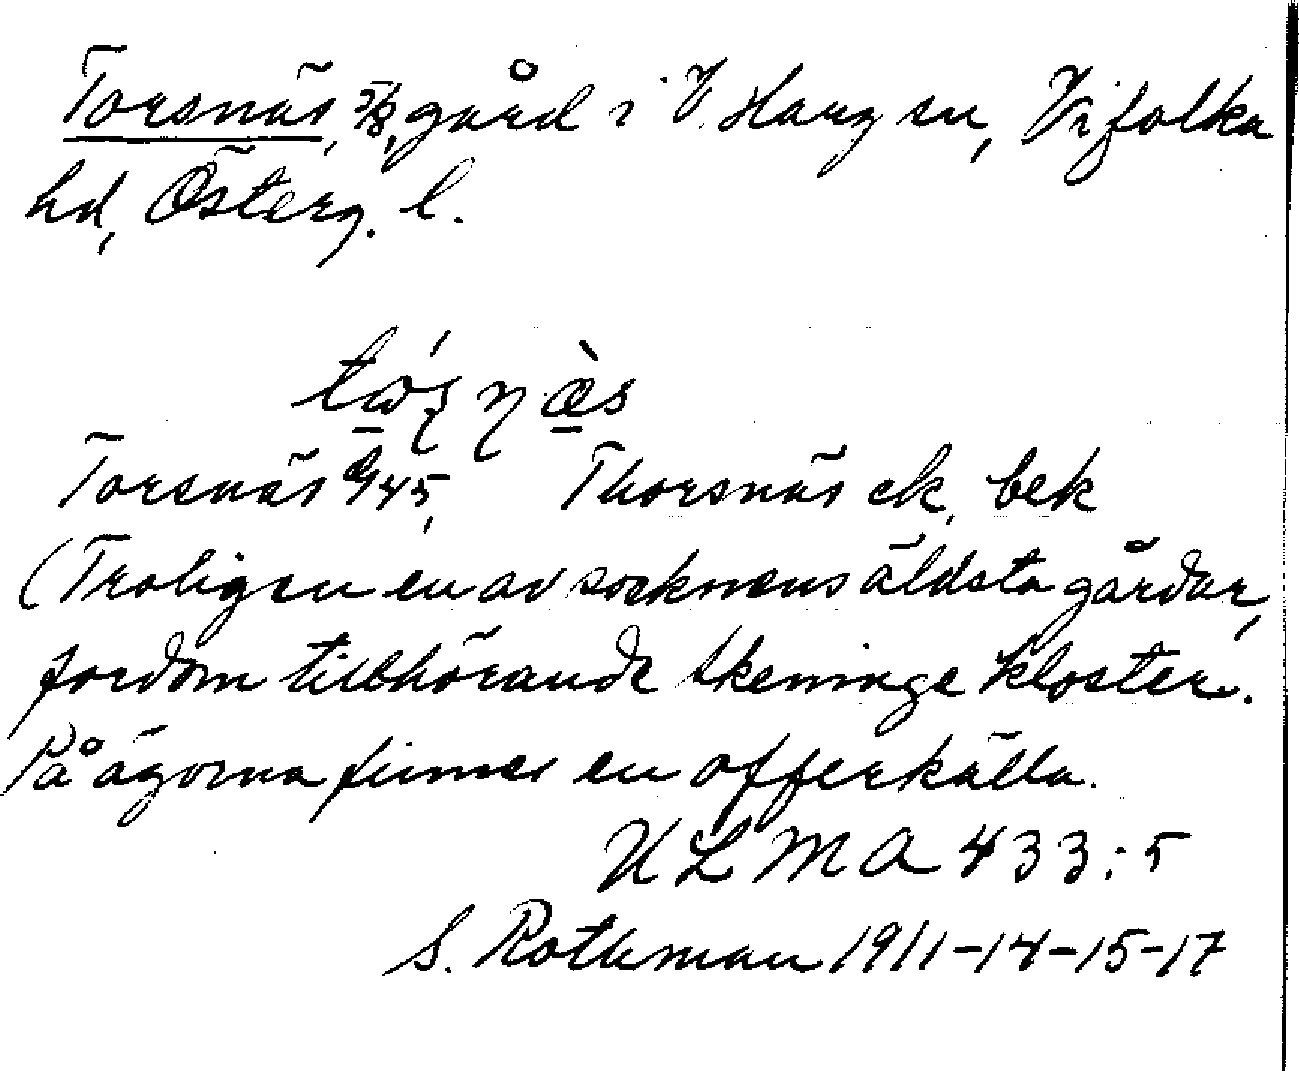 Torsnäs, gård i V. Harg sn, Vifolka
hd, Österg. l.
Torsnäs 1745, Thorsnäs ek, bek
(Troligen en av socknens äldsta gårdar,
fordom tillhörande Skeninge kloster.
På ägorna finnes en offerkälla.
ULMA 433:5
S. Rothman 1911-14-15-17